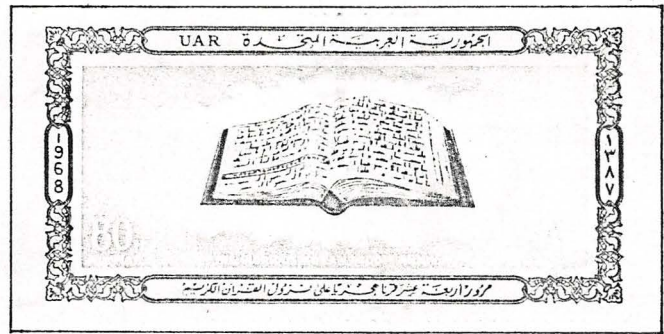 UAR الجمهورية العربية المتحدة
1968
١٣٨٧
مرور أربعة عشر قرنا هجريا على نزول القرآن الكريم